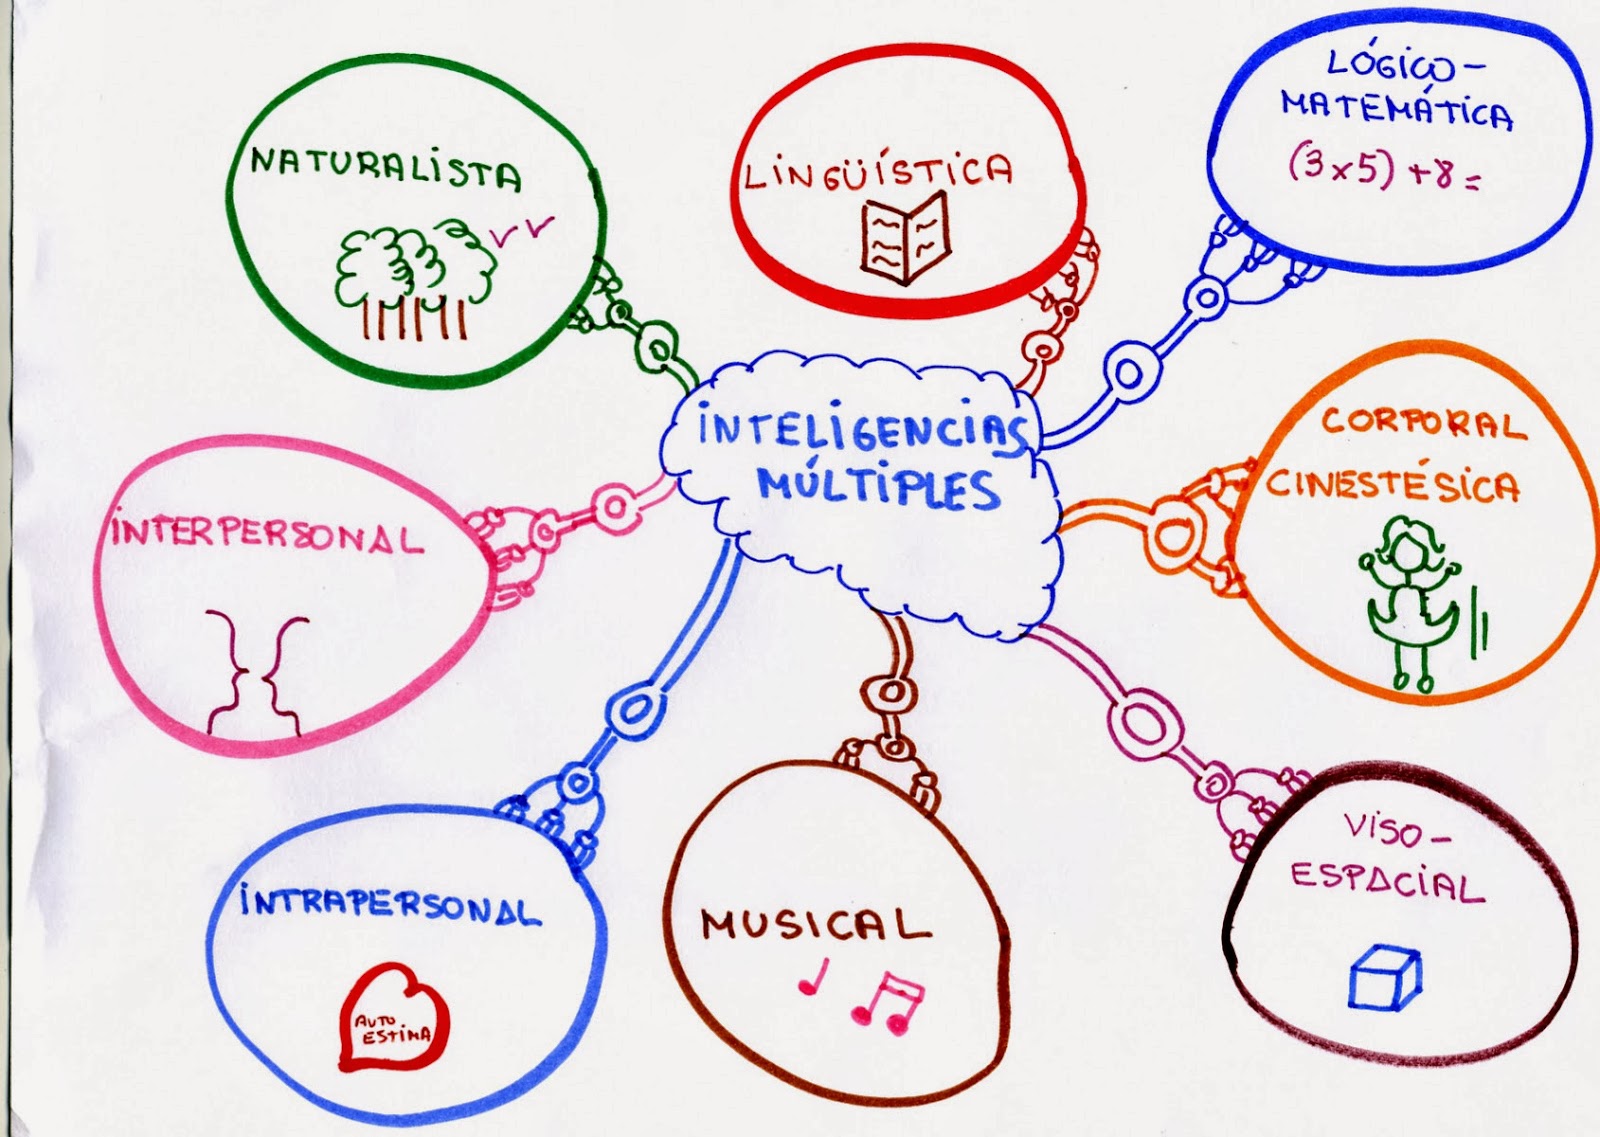 INTELIGENCIAS
MÚLTIPLES
LINGÜÍSTICA
LÓGICO-
MATEMÁTICA
(3x5)+8=
CORPORAL
CINESTÉSICA
VISO-
ESPACIAL
MUSICAL
INTRAPERSONAL
AUTO
ESTIMA
INTERPERSONAL
NATURALISTA